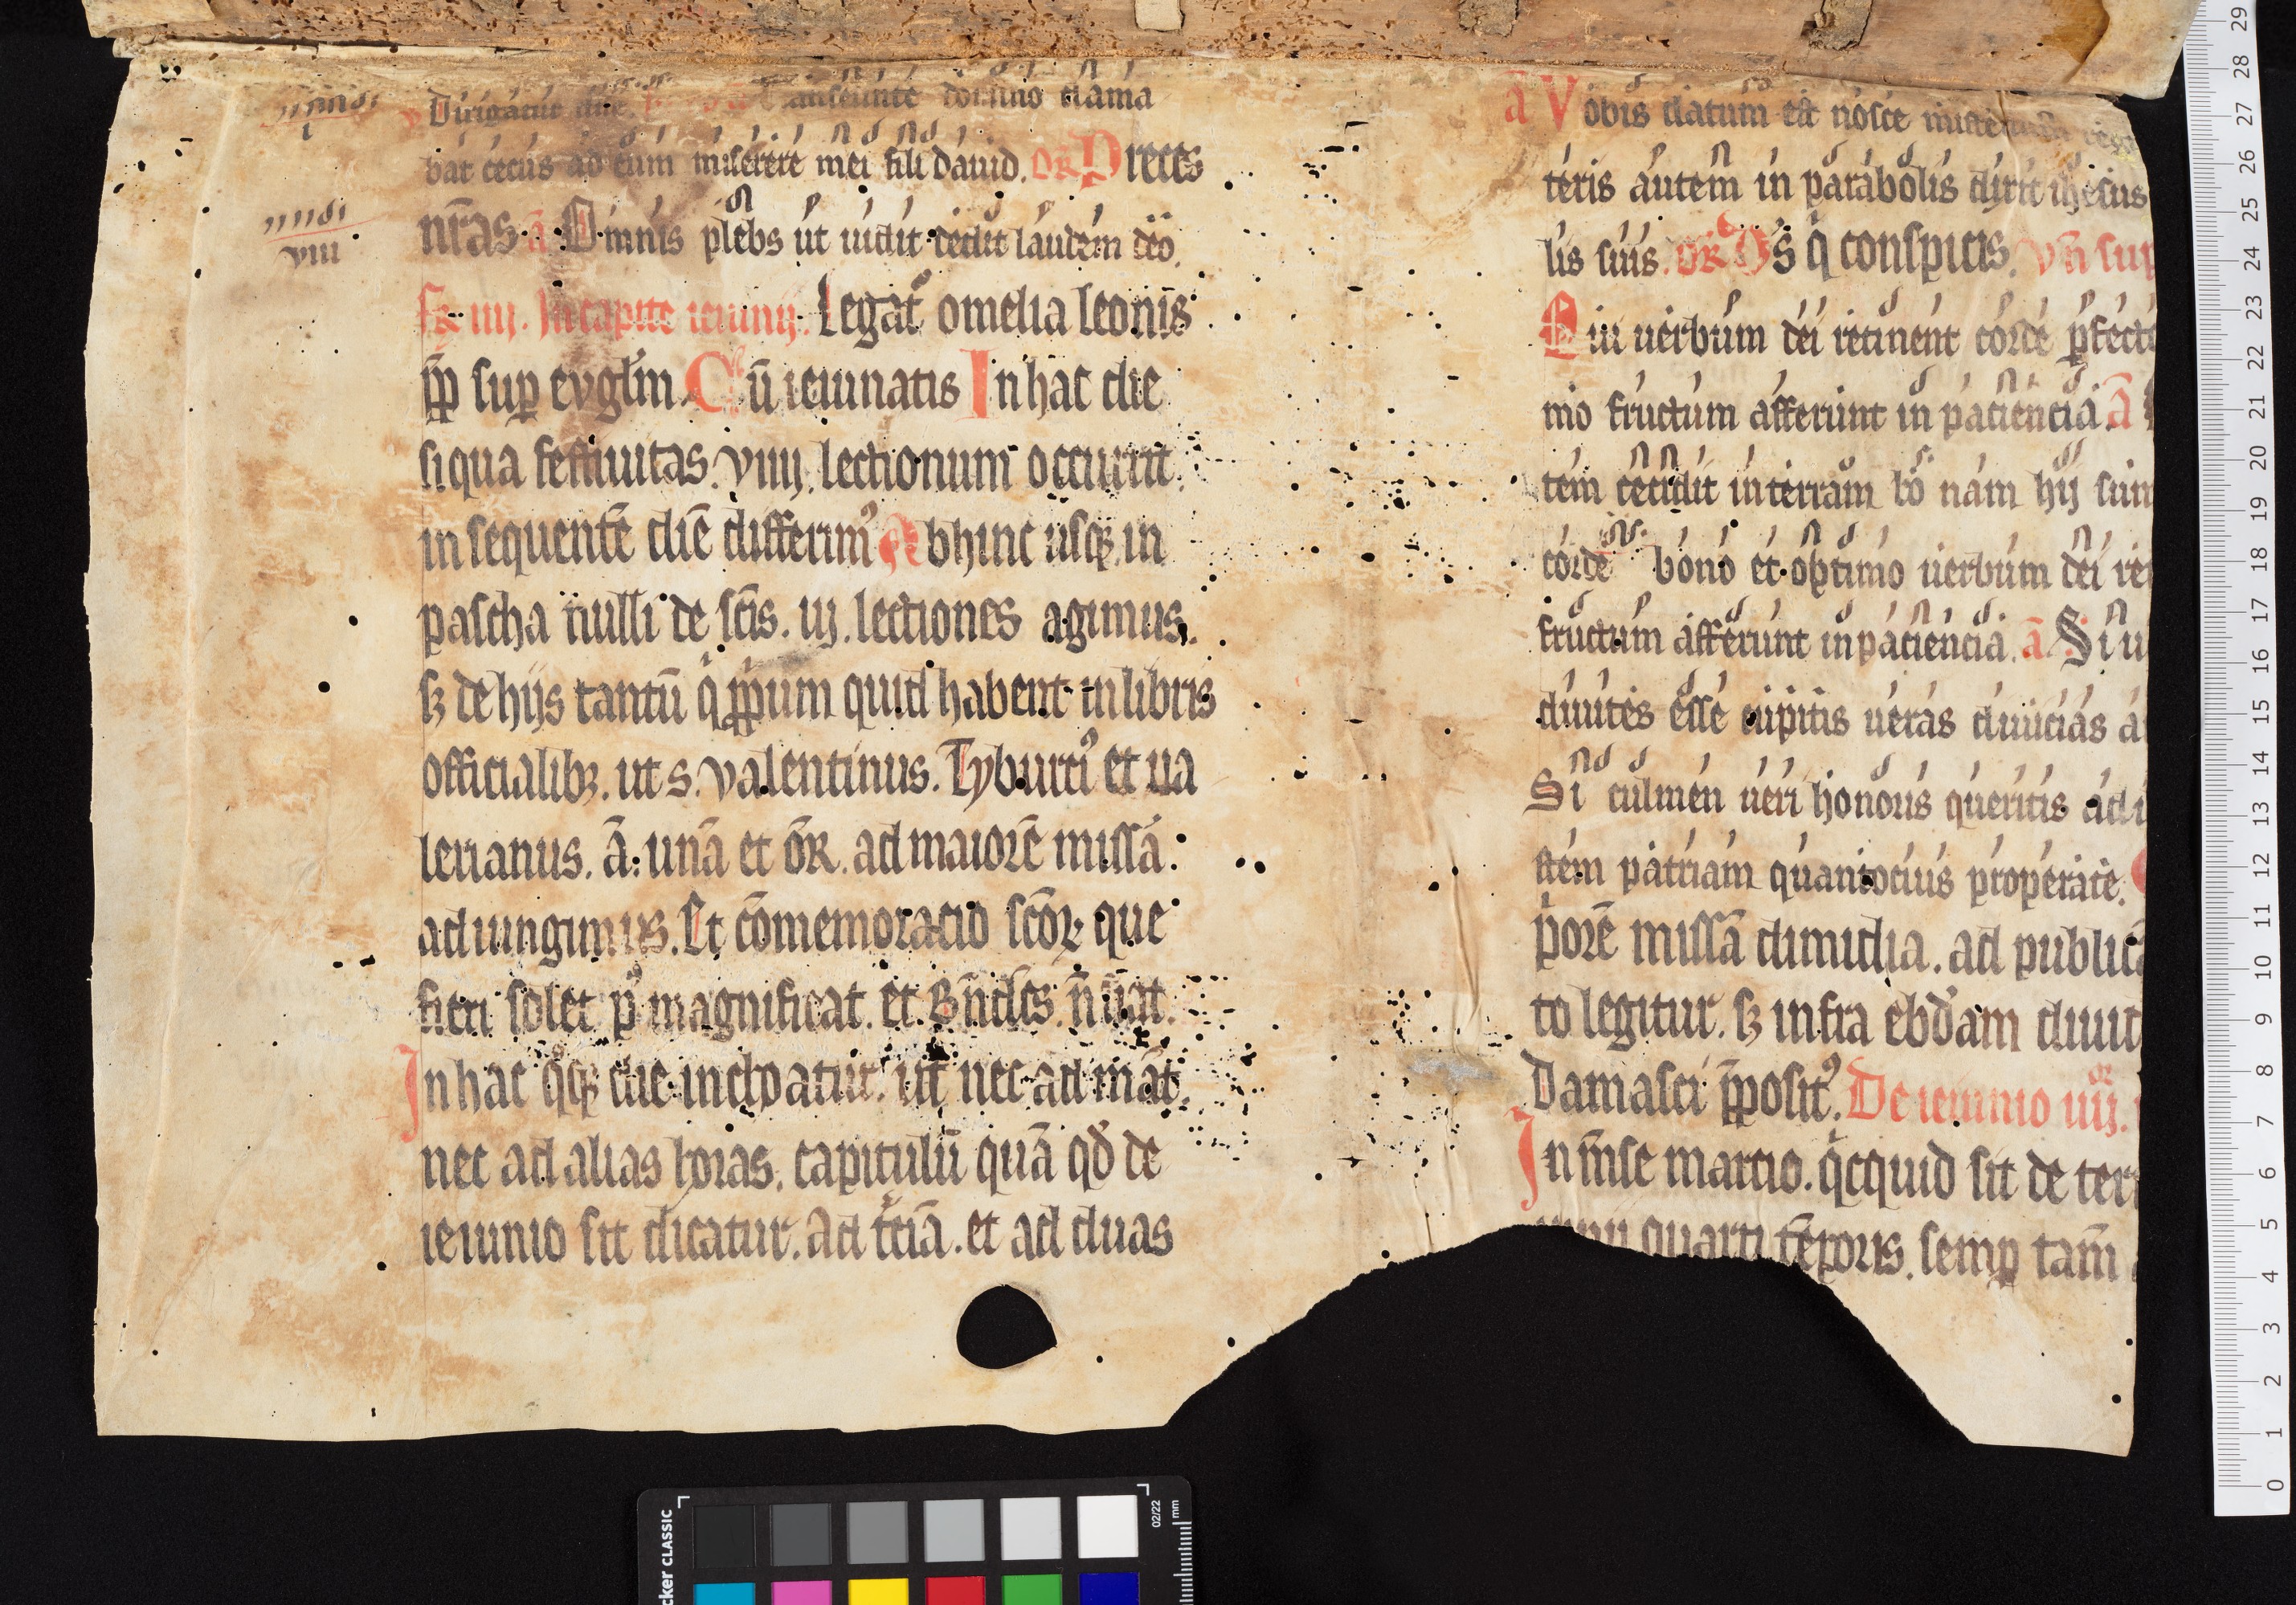 Dirigatur dñe. Transeunte domino clama
bat cecus ad eum miserere mei fili dauid. oR Preces
nr̄as. ā Omnis plebs ut uidit dedit laudem deo.
viii
fR iiij. In capite ieiunij. Legat᷑ omelia leonis
p̄p sup euglm̄. Cū ieiunatis In hac die
siqua festiuitas. viiij. lectionum occurrit.
in sequentē diē differimꝰ Abhinc usqꝫ in
pascha nulli de scīs. iij. lectiones agimus.
sꝫ de hijs tantū q̇ p̄prium quid habent in libris
officialibꝫ. ut s. valentinus. Tyburciꝰ et ua
lerianus. ā. unā et ōR. ad maiorē missā.
adiungimus. Et cōmemoracio scōꝝ que
fieri solet pꝰ magnificat. et. Bn̄dcs̄. n̄ fiat.
In hac qͦqꝫ die inchoatur. ut nec ad māt.
nec ad alias horas. capitulū quā qd̓ de
ieiunio sit dicatur. Ad t̓ciā. et ad duas
ā Vobis datum est nosce
teris autem in parabolis dixit ihesus
lis suis. oR D's q̇ conspicis.
Qui uerbum dei retinent corde ꝑfecto
mo fructum afferunt in paciencia. ā
tem cecidit in terram bo nam hij sun
corde bono et optimo uerbum dei re
fructum afferunt in paciencia. ā Si u
diuites esse cupitis ueras diuicias a
Si culmen ueri honoris queritis ad i
stem patriam quantocius properate.
p̓orē missā dimidia. ad public
to legitur. sꝫ infra ebd̓am diuit
Damasci p̄positꝰ. De ieiunio iiijor.
In m̄se marcio. q̇cquid sit de ter
quarti tēporis. semꝑ tam̄
02/22
mm
cker CLASSIC
29
28
27
26
25
24
23
22
21
20
19
18
17
16
15
14
13
12
11
10
9
8
7
6
5
4
3
2
1
0